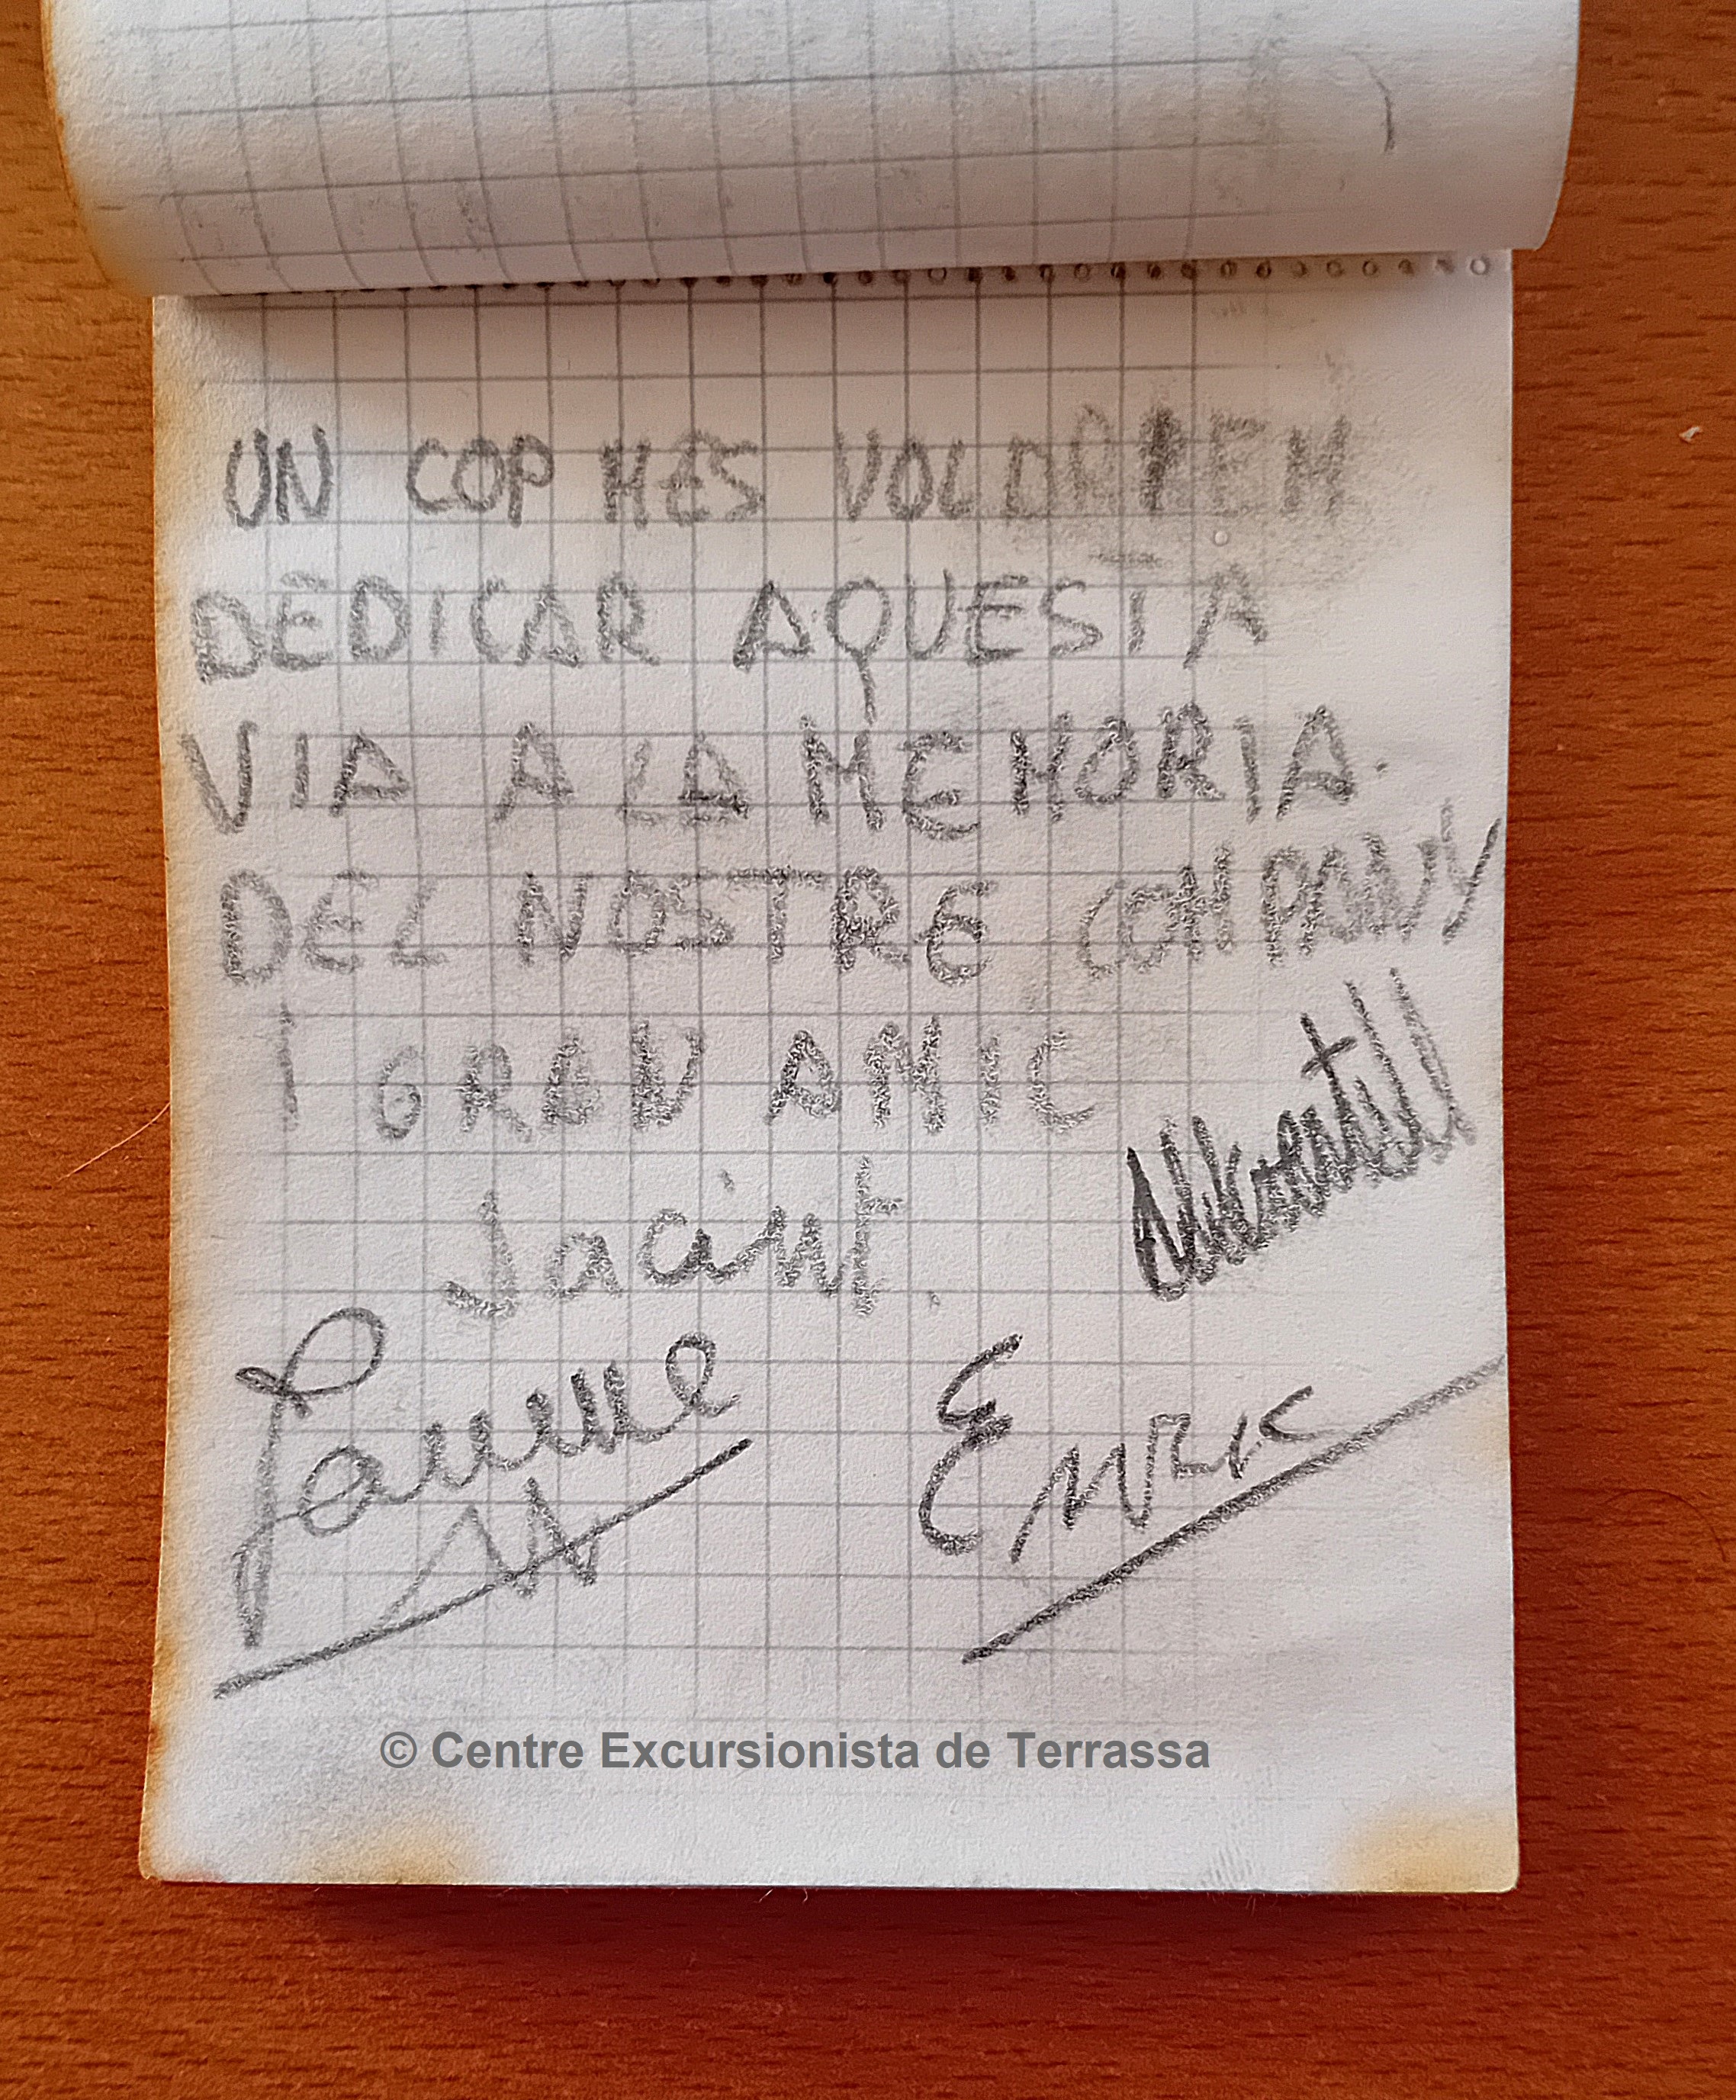 UN COP MES VOLDAREM
DEDICAR AQUESTA
VIA A LA MEMORIA
DEL NOSTRE COMPANY
I GRAN AMIC
Jacint.
Jaume
Enric
© Centre Excursionista de Terrassa